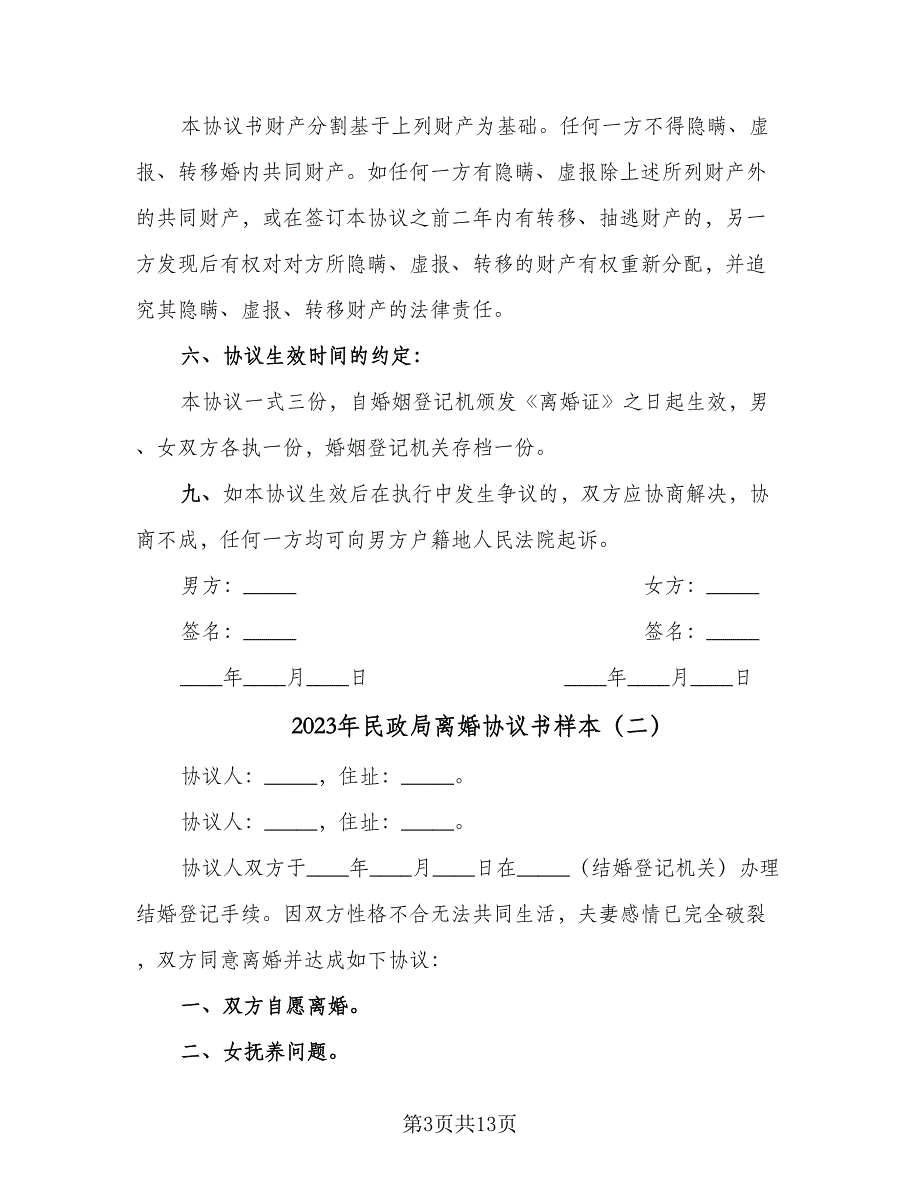 本协议书财产分割基于上列财产为基础。任何一方不得隐瞒、虚
报、转移婚内共同财产。如任何一方有隐瞒、虚报除上述所列财产外
的共同财产，或在签订本协议之前二年内有转移、抽逃财产的，另一
方发现后有权对对方所隐瞒、虚报、转移的财产有权重新分配，并追
究其隐瞒、虚报、转移财产的法律责任。
六、协议生效时间的约定：
本协议一式三份，自婚姻登记机颁发《离婚证》之日起生效，男
、女双方各执一份，婚姻登记机关存档一份。
九、如本协议生效后在执行中发生争议的，双方应协商解决，协
商不成，任何一方均可向男方户籍地人民法院起诉。
男方：_____ 女方：_____
签名：_____ 签名：_____
____年____月____日 ____年____月____日
2023年民政局离婚协议书样本（二）
协议人：_____，住址：_____。
协议人：_____，住址：_____。
协议人双方于____年____月____日在_____（结婚登记机关）办理
结婚登记手续。因双方性格不合无法共同生活，夫妻感情已完全破裂
，双方同意离婚并达成如下协议：
一、双方自愿离婚。
二、女抚养问题。
第3页共13页